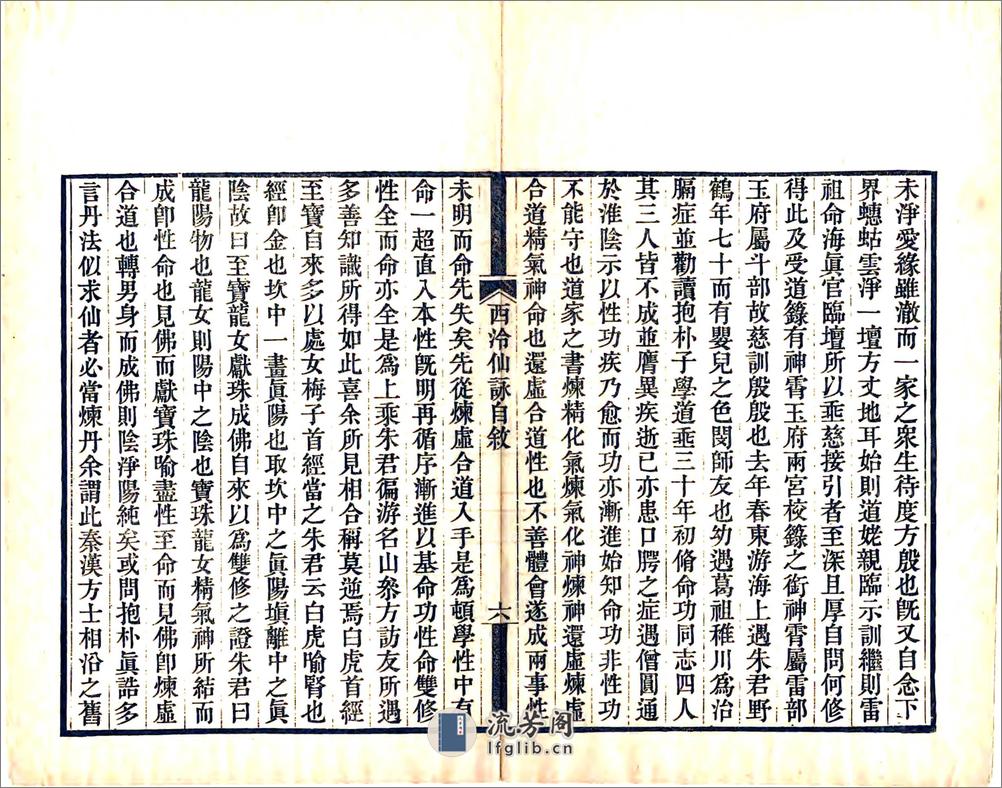 未淨愛緣雖澈而一家之衆生待度方殷也旣又自念下
界蟪蛄雲淨一壇方丈地耳始則道姥親臨示訓繼則雷
祖命海眞官臨壇所以乖慈接引者至深且厚自問何修
得此及受道籙有神霄玉府兩宮校籙之銜神霄屬雷部
玉府屬斗部故慈訓殷殷也去年春東游海上遇朱君野
鶴年七十而有嬰兒之色閔師友也幼遇葛祖稚川爲治
膈症並勸讀抱朴子學道乖三十年初脩命功同志四人
其三人皆不成並膺異疾逝己亦患口腭之症遇僧圓通
於淮陰示以性功疾乃愈而功亦漸進始知命功非性功
不能守也道家之書煉精化氣煉氣化神煉神還虛煉虛
合道精氣神命也還虛合道性也不善體會遂成兩事性
西泠仙詠自敘
六
未明而命先失矣先從煉虛合道入手是爲頓學性中有
命一超直入本性旣明再循序漸進以基命功性命雙修
性全而命亦全是爲上乘朱君徧游名山叅方訪友所遇
多善知識所得如此喜余所見相合稱莫逆焉白虎首經
至寶自來多以處女梅子首經當之朱君云白虎喻腎也
經卽金也坎中一畫眞陽也取坎中之眞陽塡離中之眞
陰故曰至寶龍女獻珠成佛自來以爲雙修之證朱君曰
龍陽物也龍女則陽中之陰也寶珠龍女精氣神所結而
成卽性命也見佛而獻寶珠喻盡性至命而見佛卽煉虛
合道也轉男身而成佛則陰淨陽純矣或問抱朴眞誥多
言丹法似求仙者必當煉丹余謂此秦漢方士相沿之舊
流芳阁
lfglib.cn